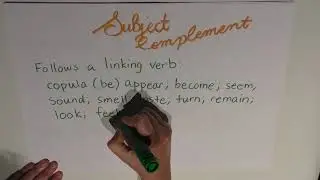 Subject
Complement
Follows a linking verb:
copula (be) appear; become; seem,
sound; smell; taste; turn; remain;
look; feel